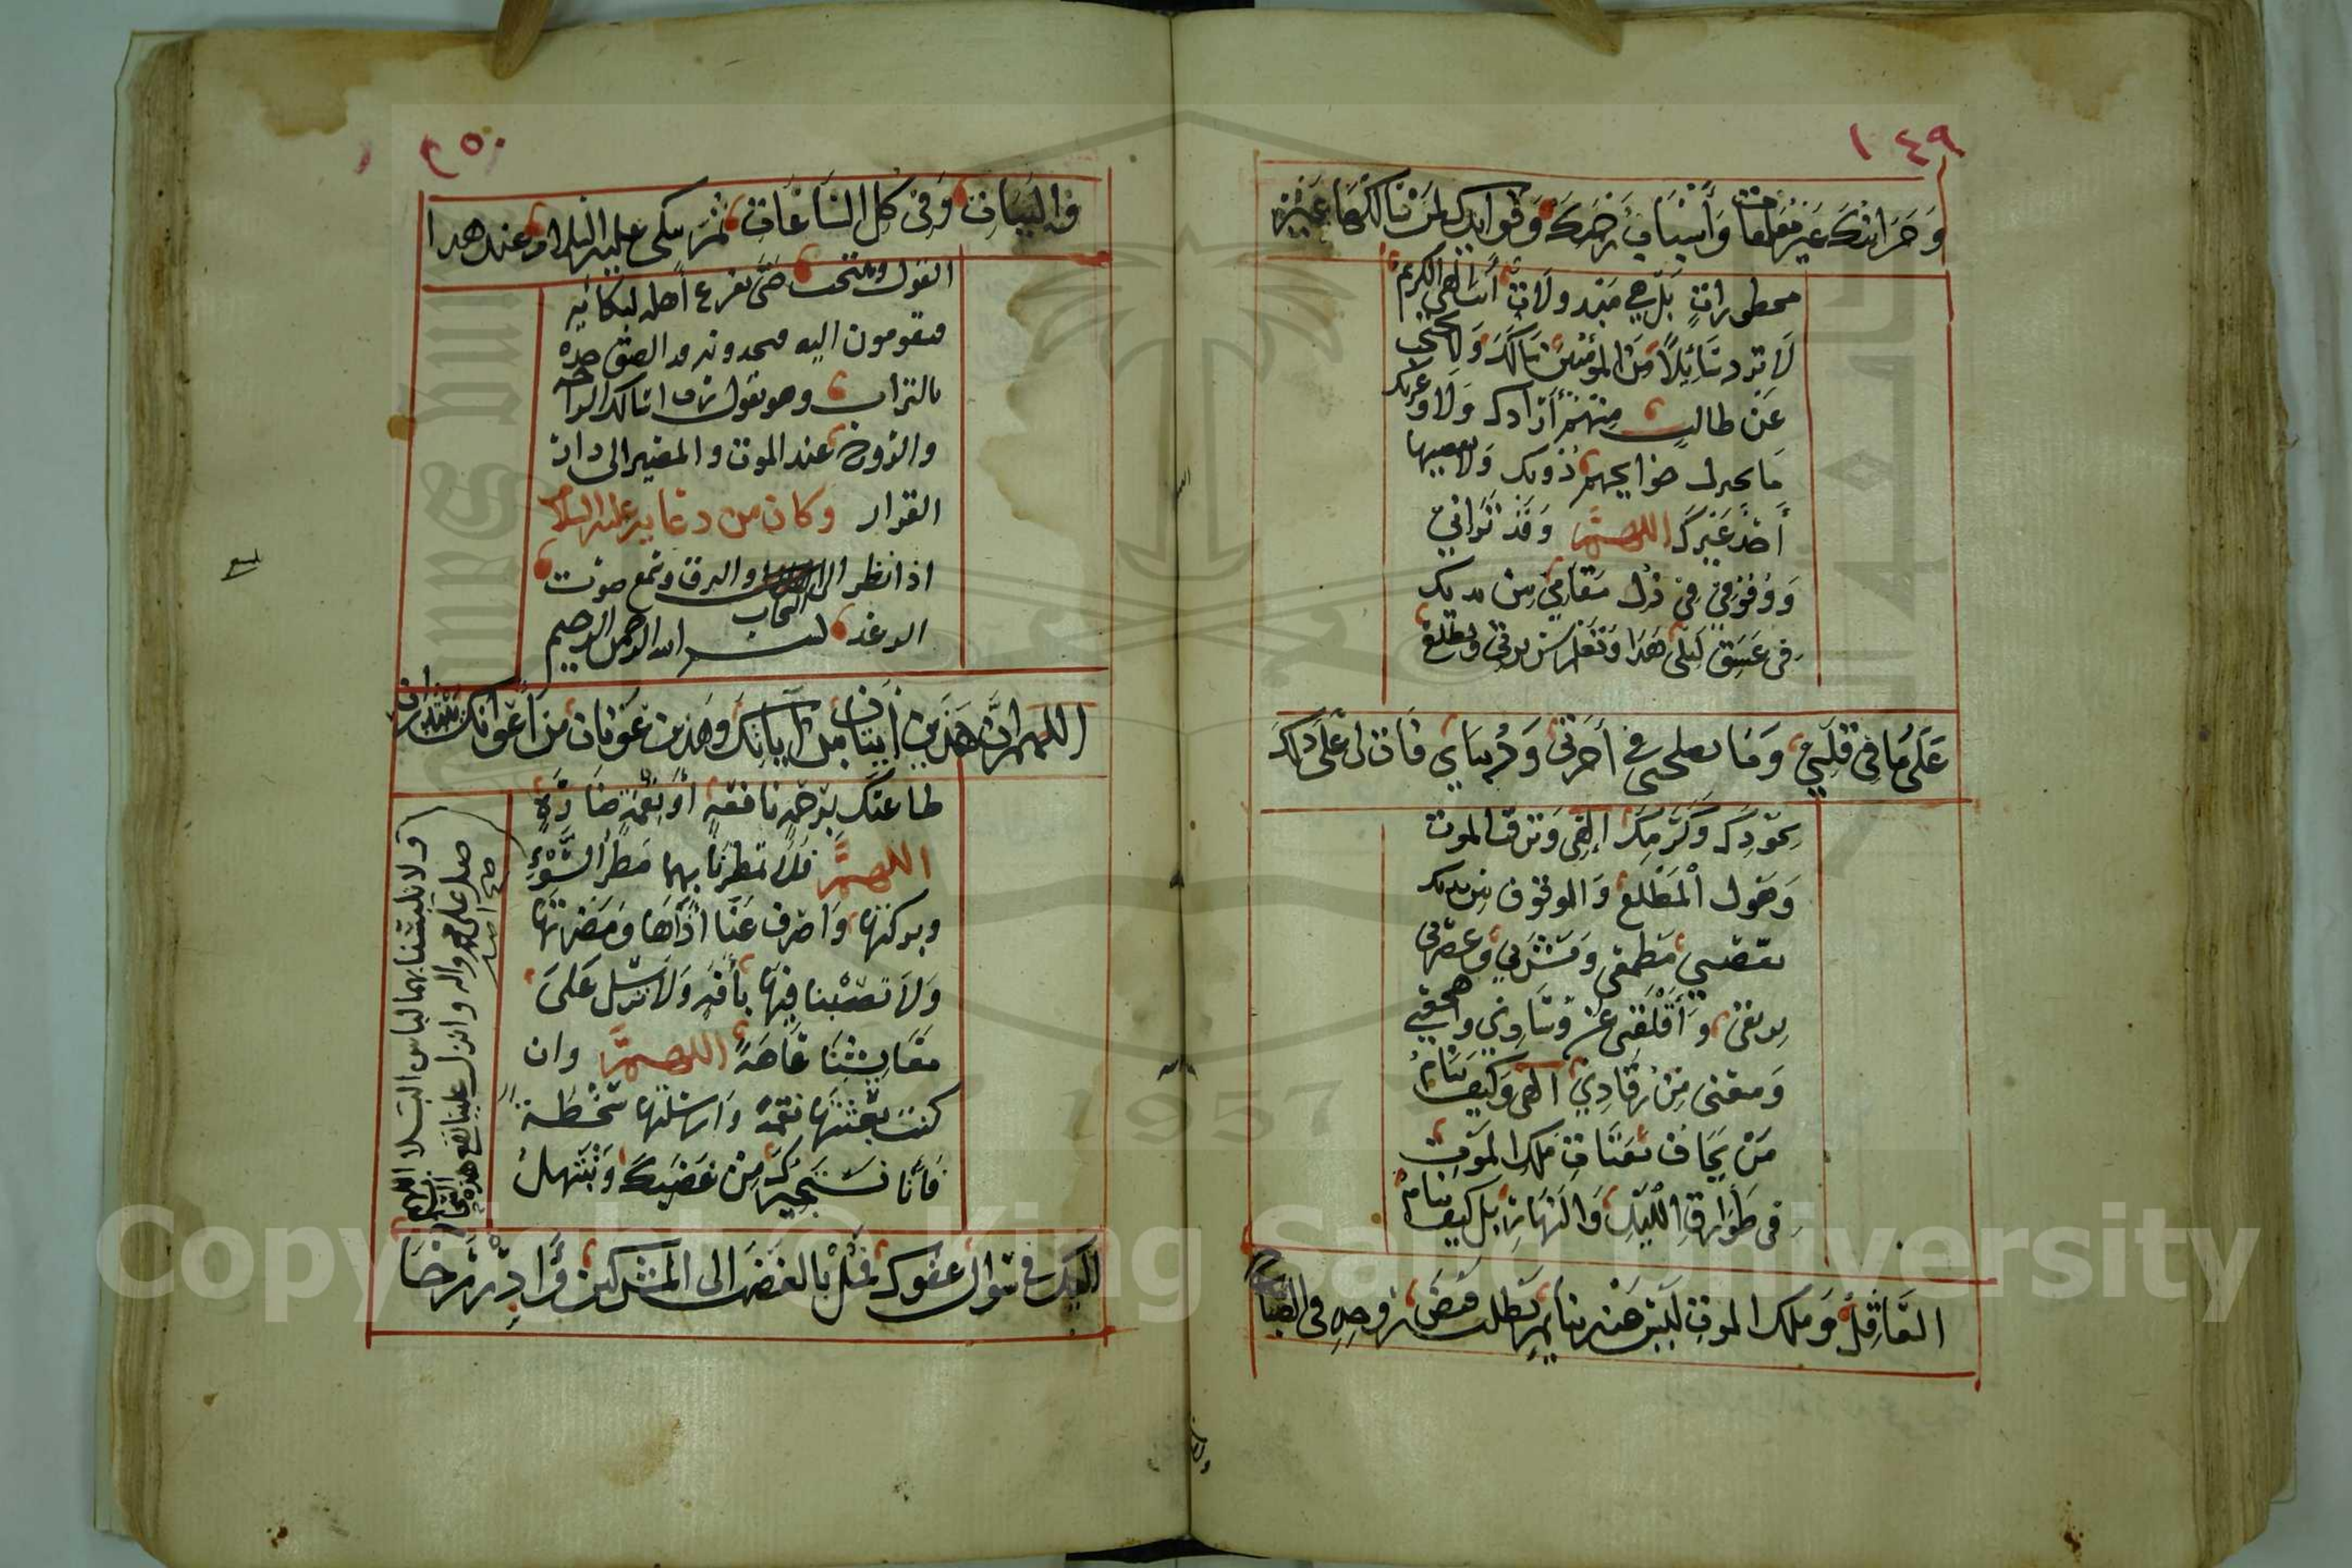 ١٤٩
وَخَزَائِنُكَ غَيْرُ مُغَلَّقَاتٍ وَأَسْبَابُ رَحْمَتِكَ وَفَوَائِدُكَ لِمَنْ سَأَلَكَهَا غَيْرُ
محظوراتٍ بَلْ هِي مَبْذولَاتٌ أنت إلهي الكريم
لَا تَرد سَائِلًا مِنَ المُؤمِنينَ سَأَلَكَ وَلا تحتجب
عَنْ طالبٍ مِنْهُمْ أَرَادكَ وَلَا وعزتك
مَا تختزل حوايجهم دُونك وَلا يقضيها
أَحَدٌ غَيْرُكَ اللهُمَّ وَقَدْ تَرَانِي
وَوُقُوفِي فِي ذُلِّ مَقَامِي بين يديك
فِي غَسَقِ لَيْلِي هَذَا وَتَعْلَمُ سَرِيرَتِي وتطلع
عَلَى مَا فِي قَلْبِي وَمَا يصلحني في آخِرَتِي وَدُنيَاي فَإن لي عَلَى ذلِكَ
بِجُودِكَ وَكَرَمِكَ إلهِي وَتَرقُّب الموت
وَهَول الْمَطْلَعِ وَالوقُوف بين يديك
نغصني مَطْعَمِي وَمَشْرَبِي وَغصني
بريقي وَأَقْلَقَنِي عَنْ وِسَادِي وَاهجعني
وَمنعني مِنْ رُقَادِي الهي وَكَيْفَ يَنَامُ
مَنْ يَخَافُ بَغَتَاتِ مَلَك الْمَوْتِ
فِي طَوَارِقِ اللَّيْلِ وَالنَّهَارِ بل كيف ينام
العَاقِلُ وَملك الموتِ لَيْسَ عَنْهُ بنايم يَطلب قَبْضَ رُوحِهِ في الصباح
١٥٠
والبَيَاتِ وَفِي كُلِّ السَّاعَاتِ ثُمَّ يبكي عليه السّلام عند هذا
القول وينتحب حَتَّى يفزع أهله لبكائه
فيقومون اليه فيجدونه قد الصق خده
بالتراب وهو يقول رب اسالك الراحة
والرّوح عند الموت والمصير الى دار
القرار وكان من دعايه عليه السلام
اذا نظر الى السحاب والبرق وسمع صوت
الرعد بسم الله الرحمن الرحيم
اللهم إنَّ هَذَينِ آيَتَانِ مِنْ آيَاتِكَ وَهَذين عَوْنَانِ مِنْ أَعْوَانِكَ يَبْتَدِرَانِ
طاعتَكَ بِرَحْمةٍ نَافِعَةٍ أَوْ نِقْمَةٍ ضَارَّةٍ
اللهُمَّ فَلَا تمطرنَا بِهِمَا مَطَرَ السَّوْءِ
وبركتها وَاصْرِف عَنَّا أَذَاهَا وَمَضَرَّتَهَا
وَلَا تصِبْنا فِيهَا بِآفَةٍ وَلَا تُرسِل عَلَى
مَعَايِشِنَا عَاهَةً اللهُمَّ وان
كنت بَعَثْتَهَا نقمةً وَارسَلْتَهَا سَخْطَةً
فَإنَّا نَسْتَجِيرُكَ مِنْ غَضَبِكَ وَنَبْتَهِلُ
اليك في سُؤال عَفْوِكَ فَمِلْ بالغَضَب الى المشركين وَأَدِرْ رَحَا
ولا تلبسنا بهما لباس البلاء اللهم
صل على محمد واله وانزل علينا نفع هذه السحائب
Copyright © King Saud University
1957